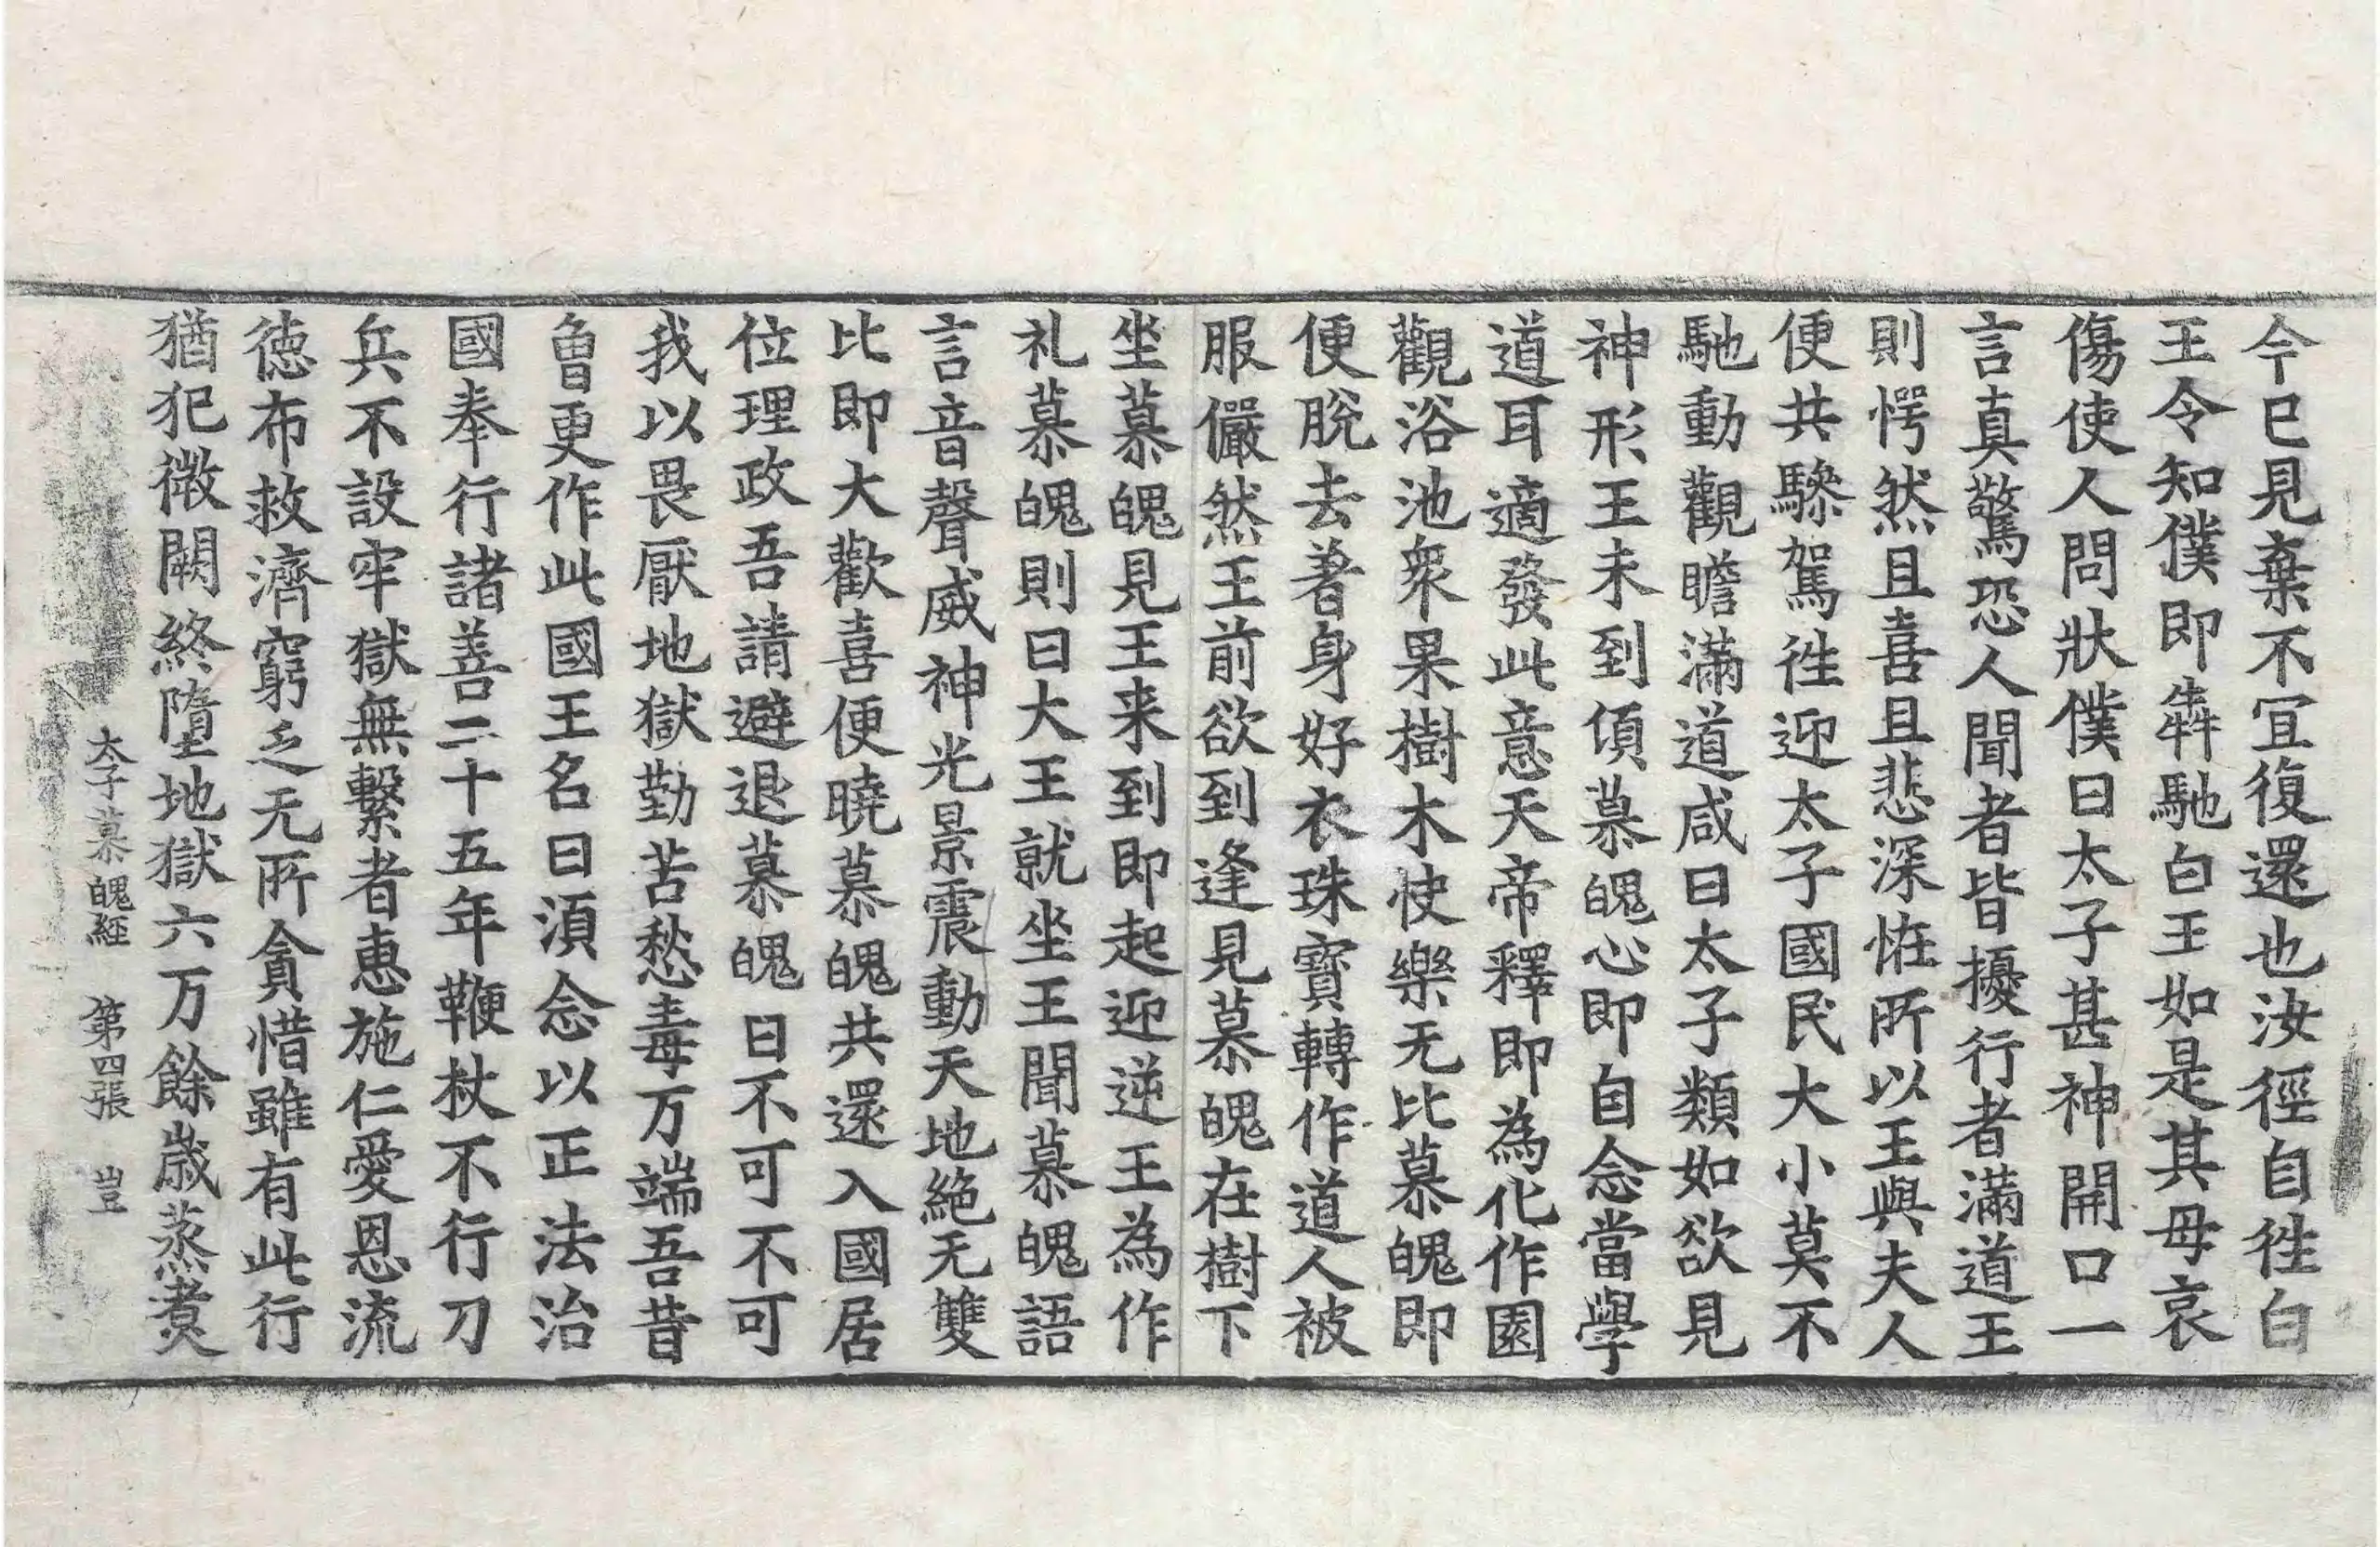 今已見棄不宜復還也汝徑自徃白
王令知僕即犇馳白王如是其母哀
傷使人問狀僕曰太子甚神開口一
言真驚恐人聞者皆擾行者滿道王
則愕然且喜且悲深恠所以王與夫人
便共驂駕徃迎太子國民大小莫不
馳動觀瞻滿道咸曰太子類如欲見
神形王未到傾慕魄心即自念當學
道耳適發此意天帝釋即為化作園
觀浴池衆果樹木快樂无比慕魄即
便脫去著身好衣珠寶轉作道人被
服儼然王前欲到逢見慕魄在樹下
坐慕魄見王来到即起迎逆王為作
礼慕魄則曰大王就坐王聞慕魄語
言音聲威神光景震動天地絶无雙
比即大歡喜便曉慕魄共還入國居
位理政吾請避退慕魄曰不可不可
我以畏厭地獄勤苦愁毒万端吾昔
曾更作此國王名曰湏念以正法治
國奉行諸善二十五年鞭杖不行刀
兵不設牢獄無繫者恵施仁愛恩流
徳布救濟窮乏无所貪惜雖有此行
猶犯微闕終墮地獄六万餘歲蒸煑
太子慕魄經 第四張 豈